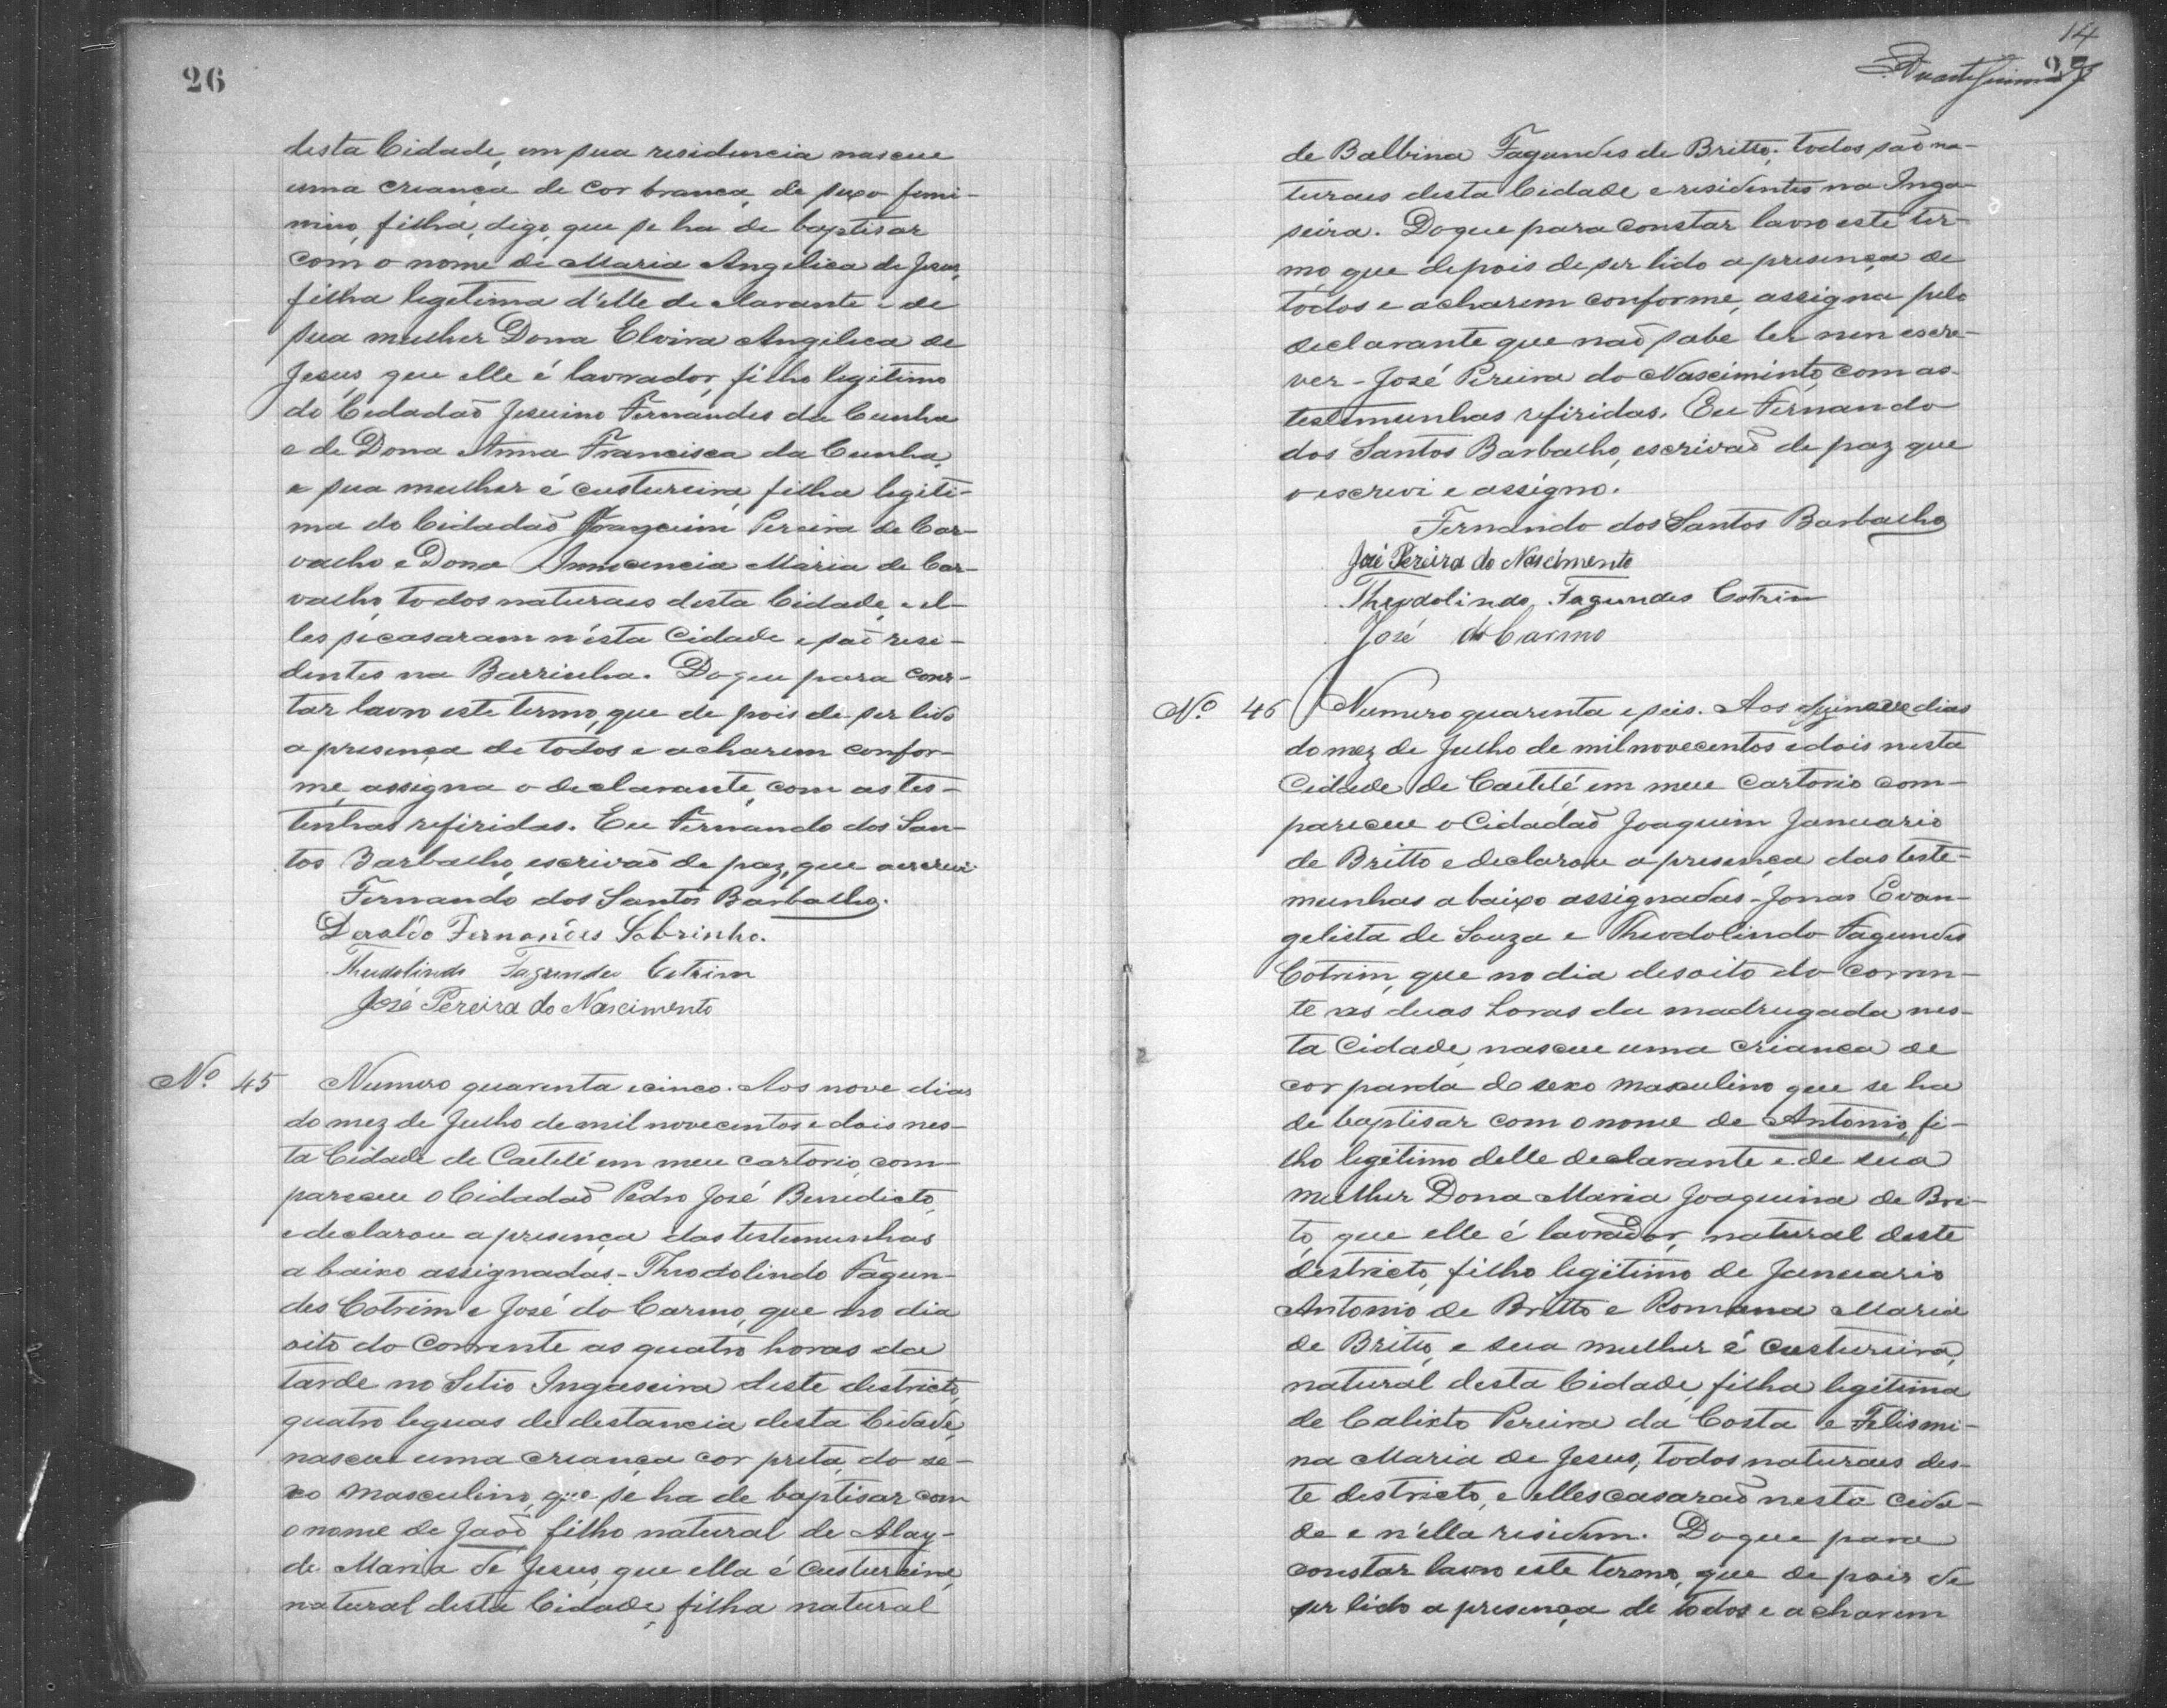 26
desta Cidade, em sua residencia nasceu
uma creança de cor branca, de sexo femi-
nino, filha, digo, que se ha de baptisar
com o nome de Maria Angelica de Jesus,
filha legitima d'elle declarante e de
sua mulher Dona Elvira Angelica de
Jesus, que elle é lavrador, filho legitimo
do Cidadaõ Jesuino Fernandes da Cunha
e de Dona Anna Francisca da Cunha,
e sua mulher é custureira, filha legiti-
ma do Cidadaõ Joaquim Pereira de Car-
valho e Dona Innocencia Maria de Car-
valho, todos naturaes desta Cidade, e el-
les se casaram n'ésta Cidade e saõ resi-
dentes na Barrinha. Do que para cons-
tar lavro este termo, que de pois de ser lido
a presença de todos e acharem confor-
me, assigna o declarante, com as tes-
tinhas refiridas. Eu Fernando dos San-
tos Barbalho, escrivaõ de paz, que o escrevi
Fernando dos Santos Barbalho.
Deraldo Fernandes Sobrinho.
Theodolindo Fagundes Cotrim
José Pereira do Nascimento
Nº 45 Numero quarenta e cinco. Aos nove dias
do mez de Julho de mil novecentos e dois nes-
ta Cidade de Caetité em meu cartorio, com-
pareceu o Cidadaõ Pedro José Benedicto,
e declarou a presença das testemunhas
a baixo assignadas - Theodolindo Fagun-
des Cotrim e José do Carmo, que no dia
oito do corrente as quatro horas da
tarde no Setio Ingaseira deste destricto,
quatro leguas de destancia desta Cidade,
nasceu uma creança cor preta, do se-
xo masculino, que se ha de baptisar com
o nome de Jaoõ filho natural de Alay-
de Maria de Jesus, que ella é custureira,
natural desta Cidade, filha natural
14
27
de Balbina Fagundes de Britto; todos saõ na-
turaes desta Cidade e residentes na Inga-
seira. Do que para constar lavro este ter-
mo, que depois de ser lido a presença de
todos e acharem conforme, assigna pelo
declarante que naõ sabe ler nem escre-
ver - José Pereira do Nasciminto, com as
testemunhas refiridas. Eu Fernando
dos Santos Barbalho, escrivaõ de paz que
o escrevi e assigno.
Fernando dos Santos Barbalho
José Pereira do Nascimento
Theodolindo Fagundes Cotrim
José do Carmo
Nº 46 Numero quarenta e seis. Aos dias
do mez de Julho de mil novecentos e dois nesta
Cidade de Caetité em meu cartorio com-
pareceu o Cidadaõ Joaquim Januario
de Britto e declarou a presença das teste-
munhas a baixo assignadas - Jonas Evan-
gelista de Souza e Theodolindo Fagundes
Cotrim, que no dia desoito do corren-
te as duas horas da madrugada nes-
ta Cidade, nasceu uma criança de
cor parda do sexo masculino que se ha
de baptisar com o nome de Antonio, fi-
lho legitimo delle declarante e de sua
mulher Dona Maria Joaquina de Bri-
to, que elle é lavrador, natural deste
destricto, filho legitimo de Januario
Antonio de Britto e Romana Maria
de Britto, e sua mulher é custureira,
natural desta Cidade, filha legitima
de Calixto Pereira da Costa e Felismi-
na Maria de Jesus, todos naturaes des-
te destricto, e elles casaraõ nesta cida-
de e n'ella residem. Do que para
constar lavro este termo, que de pois de
ser lido a presença de todos e acharem